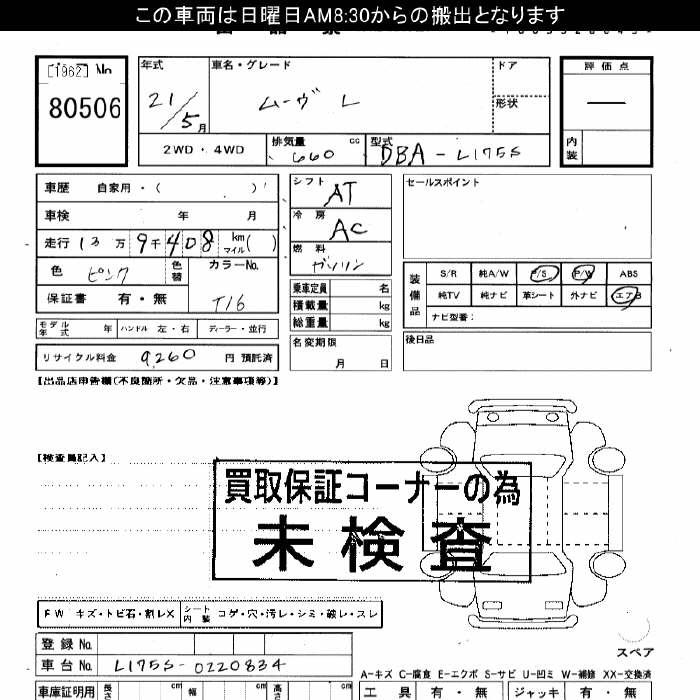 この車両は日曜日AM8:30からの搬出となります
[1962] No
80506
年式
21/5月
車名・グレード
ムーヴ L
ドア
形状
評価点
―
内装
2WD・4WD
排気量 660 cc
型式 DBA-L175S
車歴 自家用・( )
車検 年 月
走行 13万9千408 km マイル ( )
色 ピンク
色替
カラーNo. T16
保証書 有・無
モデル年式 年 ハンドル 左・右 ディーラー・並行
リサイクル料金 9,260 円 預託済
シフト AT
冷房 AC
燃料 ガソリン
乗車定員 名
積載量 kg
総重量 kg
名変期限
月 日
セールスポイント
装備品
S/R 純A/W P/S P/W ABS
純TV 純ナビ 革シート 外ナビ エアB
ナビ型番:
後日品
【出品店申告欄(不良箇所・欠品・注意事項等)】
【検査員記入】
買取保証コーナーの為
未検査
FW キズ・トビ石・割レX
シート内装 コゲ・穴・汚レ・シミ・破レ・スレ
登録No.
車台No. L175S-0220834
スペア
A-キズ C-腐食 E-エクボ S-サビ U-凹ミ W-補修 XX-交換済
車庫証明用 長さ cm 幅 cm 高さ cm
工具 有・無 ジャッキ 有・無